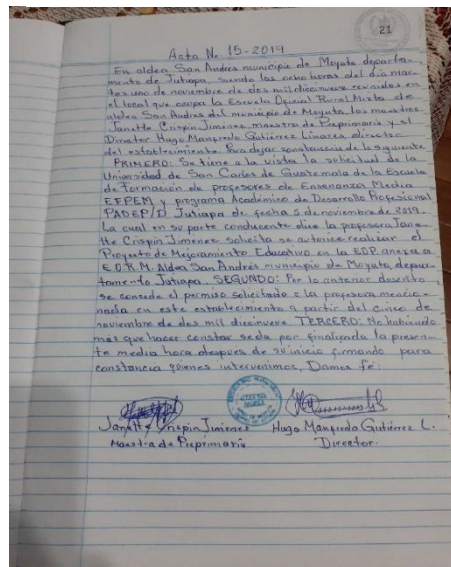 21
Acta No. 15-2019
En aldea San Andrés municipio de Moyuta departa-
mento de Jutiapa, siendo las ocho horas del día mar-
tes uno de noviembre de dos mil diecinueve reunidos en
el local que ocupa la Escuela Oficial Rural Mixta de
aldea San Andres del municipio de Moyuta, los maestros
Janette Crispin Jimenez maestra de Preprimaria y el
Director Hugo Manfredo Gutiérrez Linares director
del establecimiento. Para dejar constancia de lo siguiente
PRIMERO: Se tiene a la vista la solicitud de la
Universidad de San Carlos de Guatemala de la Escuela
de Formación de profesores de Enseñanza Media
EFPEM y programa Académico de Desarrollo Profesional
PADEP/D Jutiapa de fecha 5 de noviembre de 2019.
La cual en su parte conducente dice la profesora Jane
tte Crispin Jimenez solicita se autorice realizar el
Proyecto de Mejoramiento Educativo en la EDP anexa a
E.O.R.M. Aldea San Andrés municipio de Moyuta depar
tamento Jutiapa. SEGUNDO: Por lo anterior descrito,
se consede el permiso solicitado a la profesora mencio-
nada en este establecimiento a partir del cinco de
noviembre de dos mil diecinueve. TERCERO: No habiendo
más que hacer constar se da por finalizada la presen-
te media hora después de su inicio firmando para
constancia quienes intervenimos, Damos fé:
Janette Crispin Jimenez Hugo Manfredo Gutiérrez L.
Maestra de Preprimaria Director.